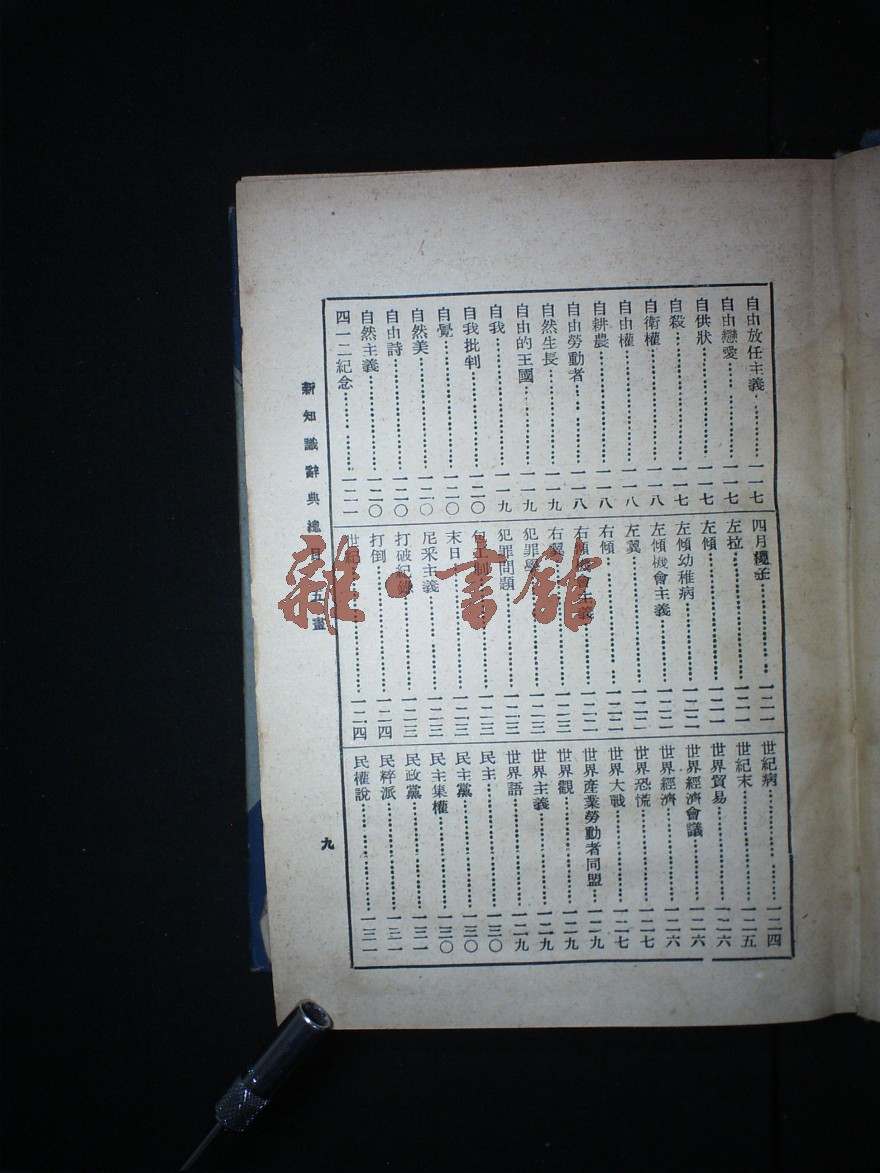 自由放任主義⋯⋯一一七
自由戀愛⋯⋯一一七
自供狀⋯⋯一一七
自殺⋯⋯一一七
自衛權⋯⋯一一八
自由權⋯⋯一一八
自耕農⋯⋯一一八
自由勞動者⋯⋯一一八
自然生長⋯⋯一一九
自由的王國⋯⋯一一九
自我⋯⋯一一九
自我批判⋯⋯一二〇
自覺⋯⋯一二〇
自然美⋯⋯一二〇
自由詩⋯⋯一二〇
自然主義⋯⋯一二〇
四一二紀念⋯⋯一二一
四月⋯⋯一二一
左拉⋯⋯一二一
左傾⋯⋯一二一
左傾幼稚病⋯⋯一二二
左傾機會主義⋯⋯一二二
左翼⋯⋯一二二
右傾⋯⋯一二二
右傾機會主義⋯⋯一二二
右翼⋯⋯一二三
犯罪學⋯⋯一二三
犯罪問題⋯⋯一二三
包工制⋯⋯一二三
末日⋯⋯一二三
尼采主義⋯⋯一二三
打破紀錄⋯⋯一二三
打倒⋯⋯一二四
世紀⋯⋯一二四
世紀病⋯⋯一二四
世紀末⋯⋯一二五
世界貿易⋯⋯一二六
世界經濟會議⋯⋯一二六
世界經濟⋯⋯一二六
世界恐慌⋯⋯一二七
世界大戰⋯⋯一二七
世界產業勞動者同盟⋯⋯一二九
世界觀⋯⋯一二九
世界主義⋯⋯一二九
世界語⋯⋯一二九
民主⋯⋯一三〇
民主黨⋯⋯一三〇
民主集權⋯⋯一三〇
民政黨⋯⋯一三一
民粹派⋯⋯一三一
民權說⋯⋯一三一
新知識辭典總目 五畫
九
雜·書館